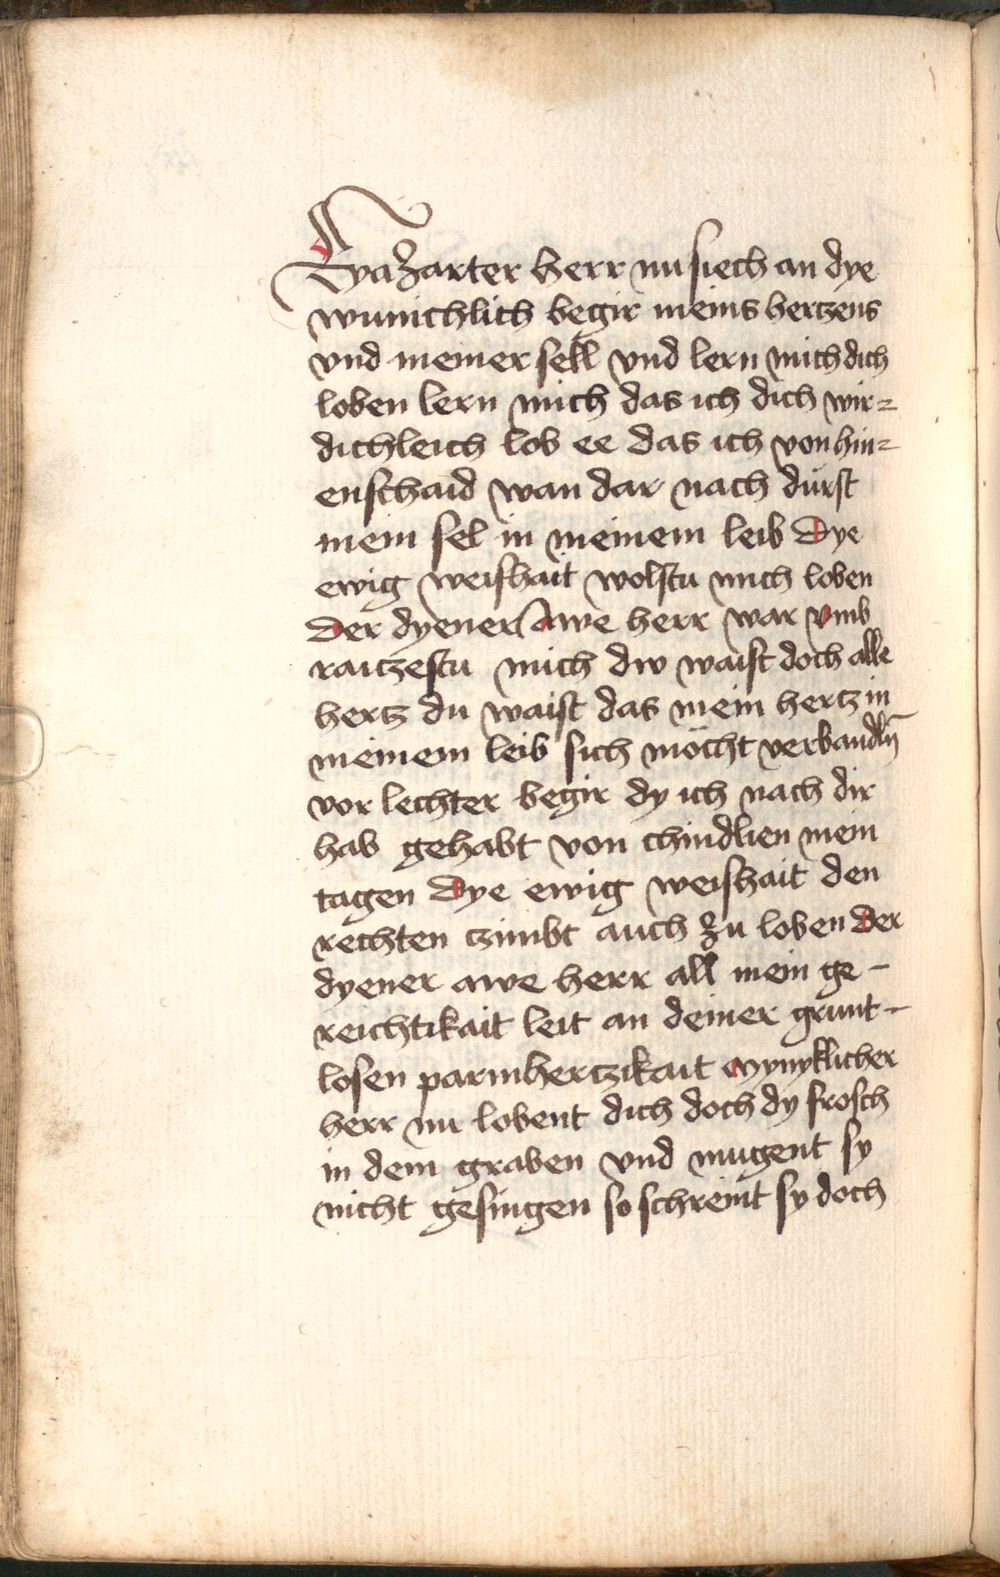 Eya zarter herr nu siech an dye
wunichlich begir meins hertzens
vnd meiner sell vnd lern mich dich
loben lern mich das ich dich wir=
dichleich lob ee das ich von hin=
enschaid wan dar nach dürst
mein sel in meinem leib Dye
ewig weishait wolstu mich loben
Der dyener Awe herr war vmb
raitzestu mich dw waist doch alle
hertz du waist das mein hertz in
meinem leib sich möcht verbandln̄
vor lechter begir dy ich nach dir
hab gehabt von chindlien mein
tagen Dye ewig weishait den
rechten czimbt auch zu loben Der
dyener awe herr all mein ge-
reichtikait leit an deiner grunt-
losen parmhertzikait Mynyklicher
herr nu lobent dich doch dy frosch
in dem graben vnd mugent sy
nicht gesingen so schreint sy doch